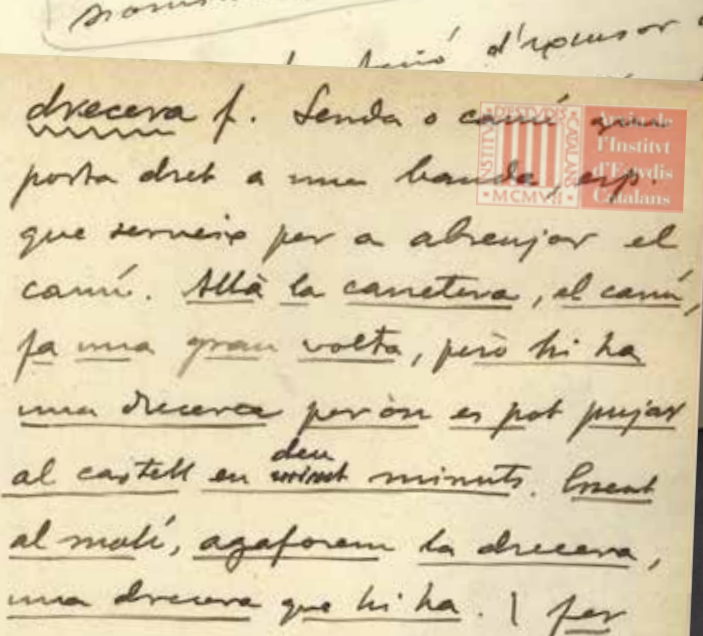 d'expulsor
drecera f. Senda o camí que
porta dret a una banda, esp.
que serveix per a abreujar el
camí. Allà la carretera, el camí,
fa una gran volta, però hi ha
una drecera per on es pot pujar
al castell en deu minuts.
al molí, agafarem la drecera,
una drecera que hi ha. | fer
INSTITVT D'ESTVDIS CATALANS
MCMVII
Arxiu de
l'Institvt
d'Estvdis
Catalans